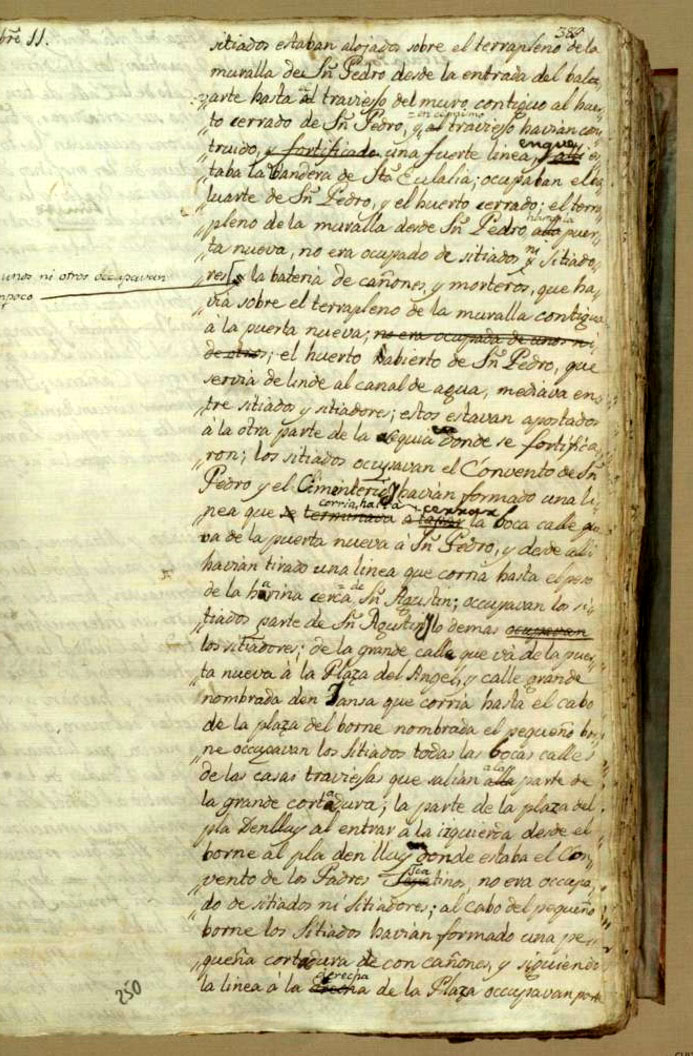 bre 11.
389
sitiados estaban alojados sobre el terrapleno de la
muralla de Sn Pedro desde la entrada del balu,
arte hasta al traviesso del muro contiguo al huer,
to cerrado de Sn Pedro, y el traviesso havian con,
truido, y fortificado una fuerte linea, enque es,
taba la bandera de Sta Eulalia; ocupaban el ba,
luarte de Sn Pedro, y el huerto cerrado; el terra,
pleno de la muralla desde Sn Pedro hasta la puer,
ta nueva, no era ocupado de sitiados ni sitiado,
res [ la bateria de cañones, y morteros, que ha,
unos ni otros occupavan
mpoco
via sobre el terrapleno de la muralla contigua
à la puerta nueva; no era ocupada de unos ni
de otros; el huerto habierto de Sn Pedro, que
servia de linde al canal de agua, mediava en,
tre sitiados y sitiadores; estos estavan apostados
à la otra parte de la sequia donde se fortifica,
ron; los sitiados ocupavan el Convento de Sn
Pedro y el Ciminterio, y havian formado una li,
nea que se terminava corria hasta à tapar cerrar la boca calle que
va de la puerta nueva à Sn Pedro, y desde alli
havian tirado una linea que corria hasta el peso
de la harina cerca de Sn Agustin; occupavan los si,
tiados parte de Sn Agustin, y lo demas ocupavan
los sitiadores; de la grande calle que và de la puer,
ta nueva à la Plaza del Angel, y calle grande
nombrada den Tansa que corria hasta el cabo
de la plaza del borne nombrada el pequeño bor,
ne occupavan los sitiados todas las bocas calles
de las casas traviessas que salian a la parte de
la grande cortadura; la parte de la plaza del
pla Denlluy al entrar à la izquierda desde el
borne al pla den lluy donde estaba el Con,
vento de los Padres tinos, no era occupa,
do de sitiados ni sitiadores; al cabo del pequeño
borne los sitiados havian formado una pe,
queña cortadura de con cañones, y siguiendo
la linea à la derecha de la Plaza occupavan por
250